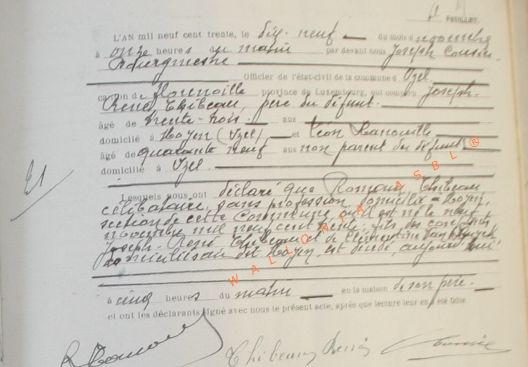 FEUILLET.
L'AN mil neuf cent trente, le dix-neuf du mois d novembre
à onze heures du matin par devant nous Joseph
Bourgmestre
Officier de l'état-civil de la commune d Izel
canton de Florenville province de Luxembourg, ont comparu Joseph-
René Thibeau, père du défunt.
âgé de trente-trois ans
domicilié à Moyen (Izel) et Léon
âgé de quarante neuf ans non parent du défunt
domicilié à Izel.
Lesquels nous ont déclaré que Romond Thibeau
célibataire, sans profession domicilié à Moyen,
section de cette Commune, où il est né le neuf
novembre mil neuf cent trente, fils des conjoints
Joseph-René Thibeau et de Clémentine
domiciliés à Moyen, est décédé, aujourd'hui
à cinq heures du matin en la maison de son père.
et ont les déclarants signé avec nous le présent acte, après que lecture leur en est faite.
Thibeau René
WALLONIA ASBL ®